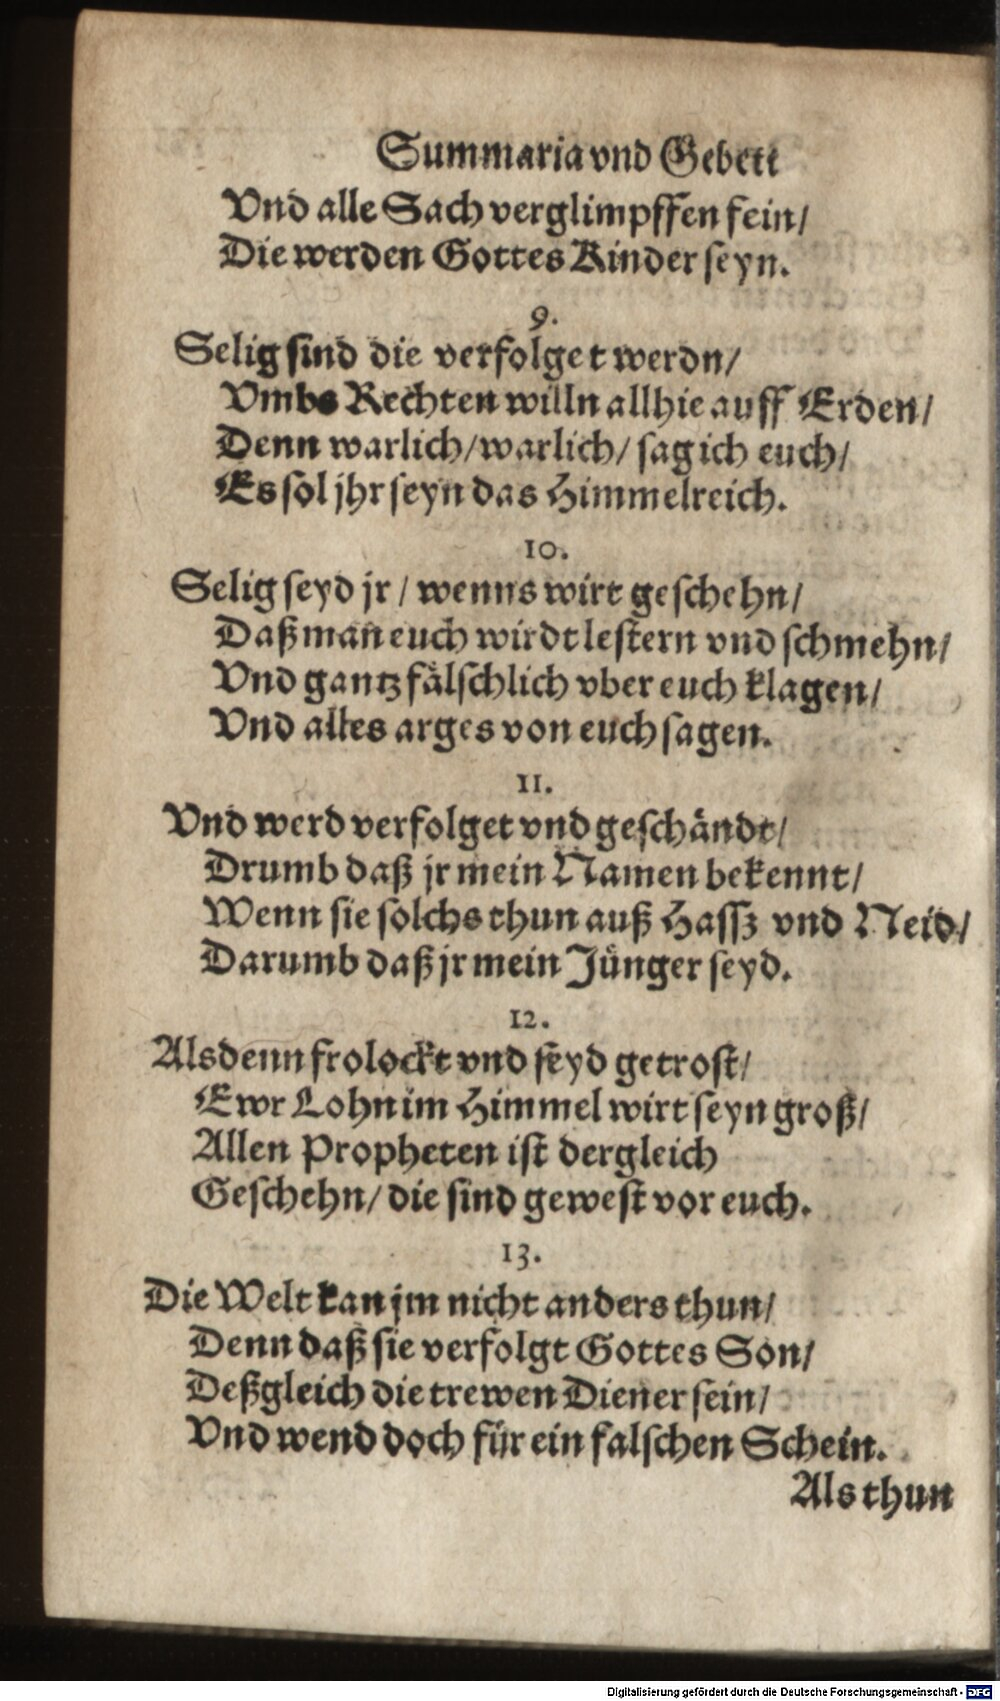 Summaria vnd Gebett
Vnd alle Sach verglimpffen fein/
Die werden Gottes Kinder seyn.
9.
Selig sind die verfolget werdn/
Vmbs Rechten willn allhie auff Erden/
Denn warlich/ warlich/ sag ich euch/
Es sol jhr seyn das Himmelreich.
10.
Selig seyd jr / wenns wirt geschehn/
Daß man euch wirdt lestern vnd schmehn/
Vnd gantz fälschlich vber euch klagen/
Vnd alles arges von euch sagen.
11.
Vnd werd verfolget vnd geschändt/
Drumb daß jr mein Namen bekennt/
Wenn sie solchs thun auß Hassz vnd Neid/
Darumb daß jr mein Jünger seyd.
12.
Alsdenn frolockt vnd seyd getrost/
Ewr Lohn im Himmel wirt seyn groß/
Allen Propheten ist dergleich
Geschehn/ die sind gewest vor euch.
13.
Die Welt kan jm nicht anders thun/
Denn daß sie verfolgt Gottes Son/
Deßgleich die trewen Diener sein/
Vnd wend doch für ein falschen Schein.
Als thun
Digitalisierung gefördert durch die Deutsche Forschungsgemeinschaft - DFG